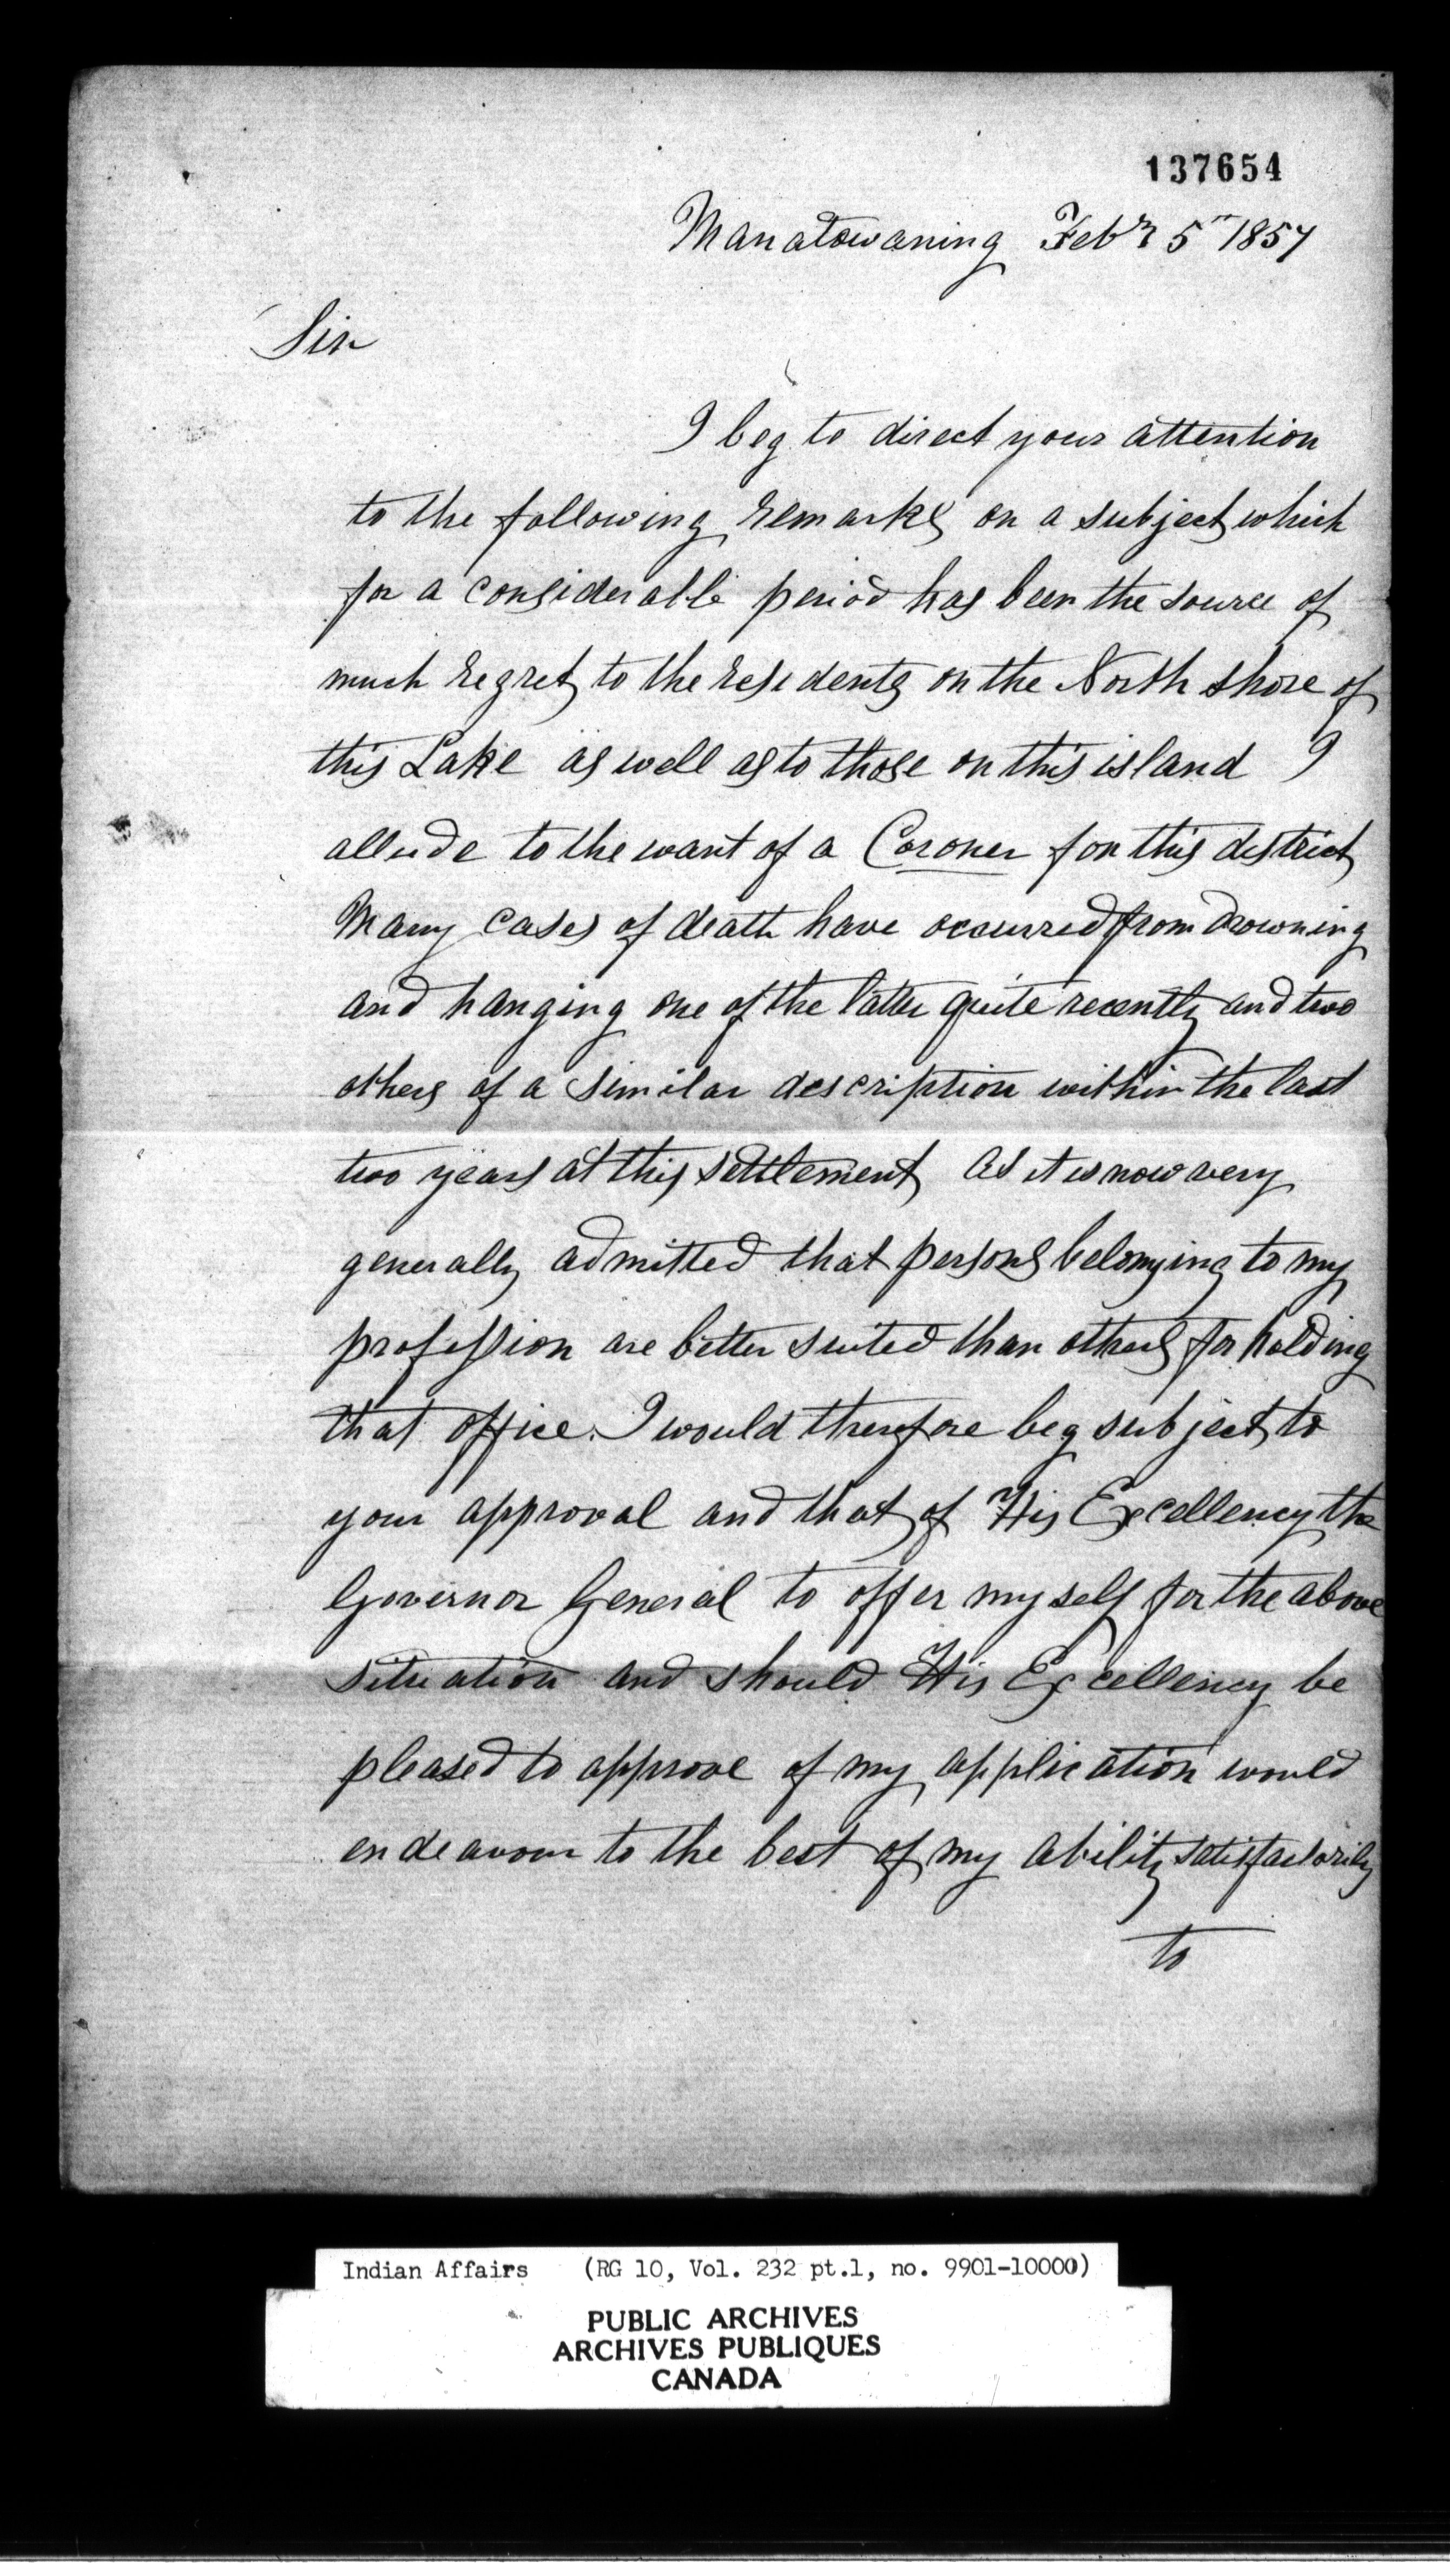 137654
Manatowaning Feby 5th 1857
Sir
I beg to direct your attention
to the following remarks on a subject which
for a considerable period has been the source of
much regret to the residents on the North shore of
this Lake as well as to those on this island I
allude to the want of a Coroner for this district
Many cases of death have occurred from drowning
and hanging one of the latter quite recently and two
others of a similar description within the last
two years at this settlement As it is now very
generally admitted that persons belonging to my
profession are better suited than others for holding
that office. I would therefore beg subject to
your approval and that of His Excellency the
Governor General to offer myself for the above
situation and should His Excellency be
pleased to approve of my application would
endeavour to the best of my ability satisfactorily
to
Indian Affairs (RG 10, Vol. 232 pt.1, no. 9901-10000)
PUBLIC ARCHIVES
ARCHIVES PUBLIQUES
CANADA